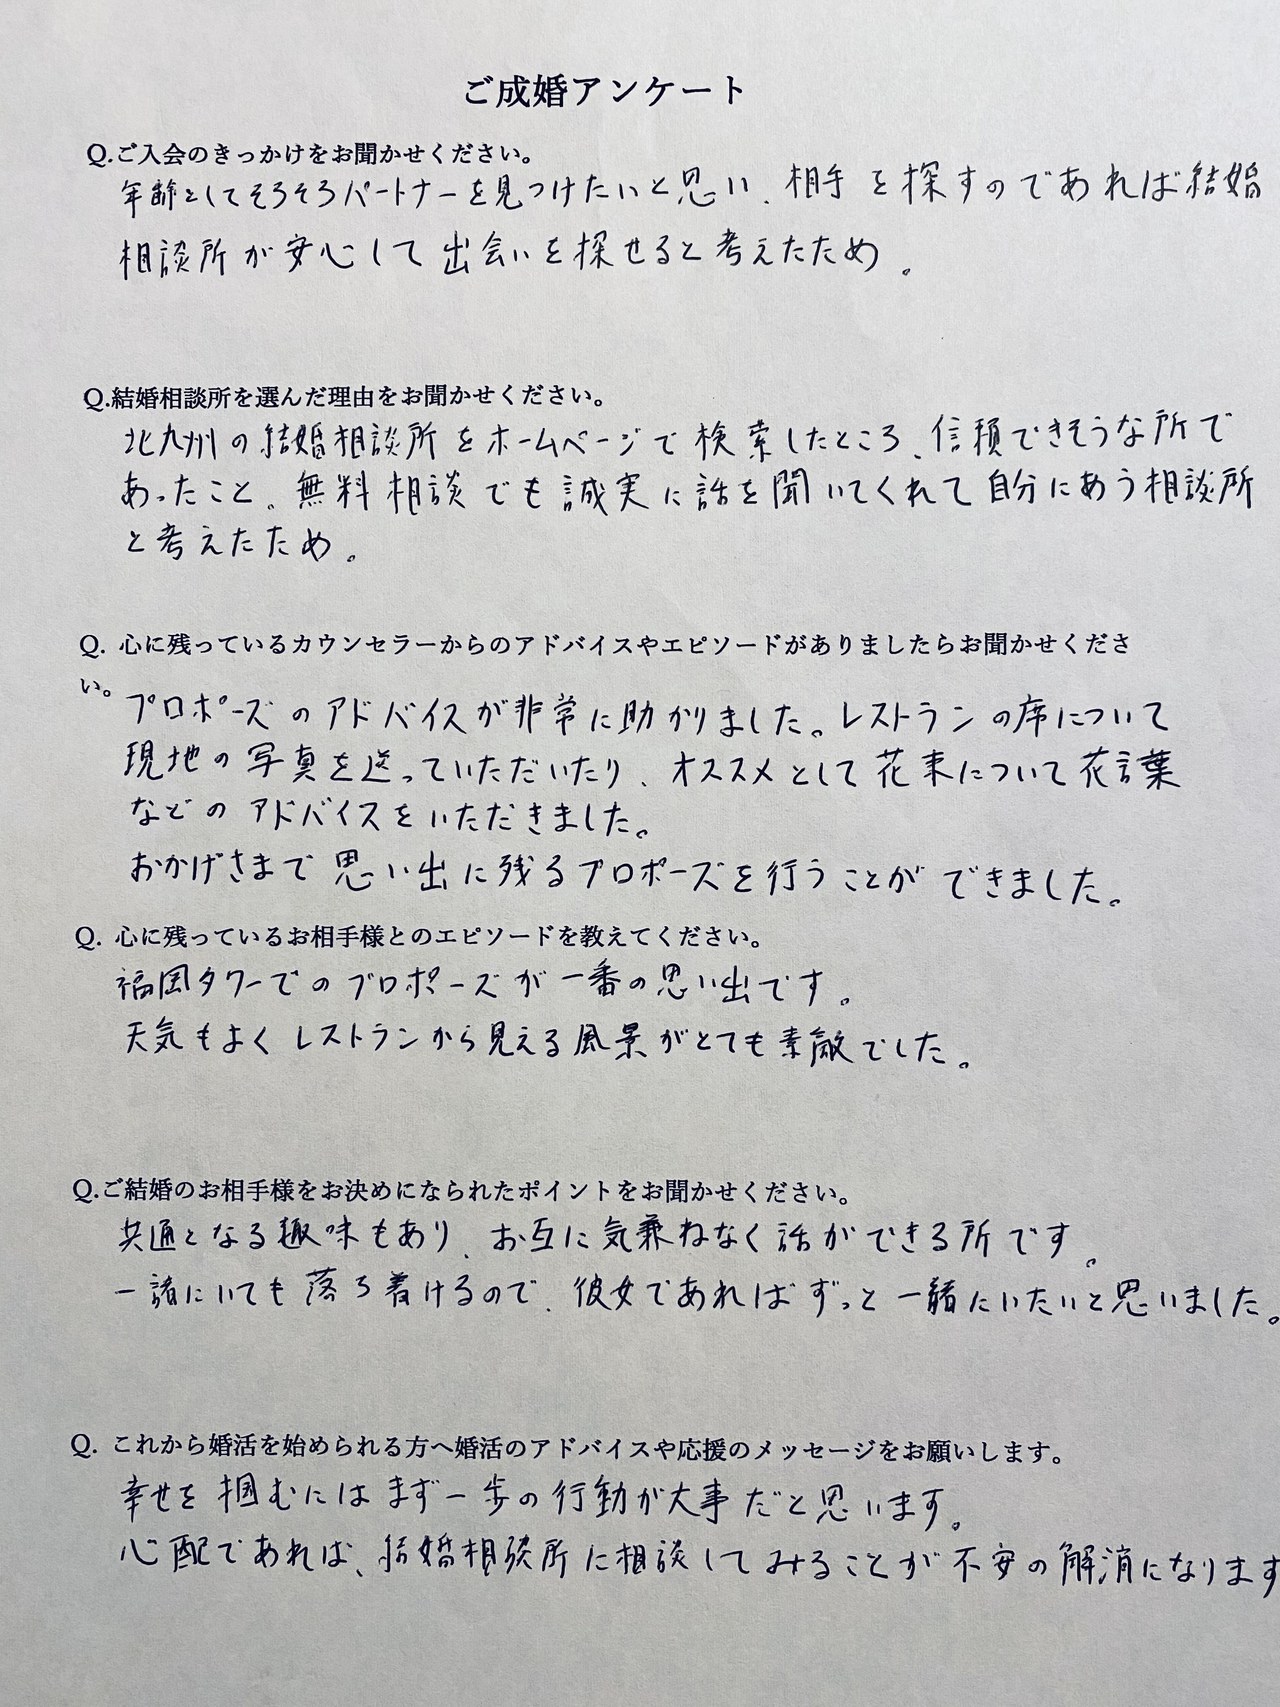 ご成婚アンケート
Q.ご入会のきっかけをお聞かせください。
年齢としてそろそろパートナーを見つけたいと思い、相手を探すのであれば結婚
相談所が安心して出会いを探せると考えたため。
Q.結婚相談所を選んだ理由をお聞かせください。
北九州の結婚相談所をホームページで検索したところ、信頼できそうな所で
あったこと。無料相談でも誠実に話を聞いてくれて自分にあう相談所
と考えたため。
Q. 心に残っているカウンセラーからのアドバイスやエピソードがありましたらお聞かせくださ
い。
プロポーズのアドバイスが非常に助かりました。レストランの席について
現地の写真を送っていただいたり、オススメとして花束について花言葉
などのアドバイスをいただきました。
おかげさまで思い出に残るプロポーズを行うことができました。
Q. 心に残っているお相手様とのエピソードを教えてください。
福岡タワーでのプロポーズが一番の思い出です。
天気もよくレストランから見える風景がとても素敵でした。
Q.ご結婚のお相手様をお決めになられたポイントをお聞かせください。
共通となる趣味もあり、お互に気兼ねなく話ができる所です。
一緒にいても落ち着けるので、彼女であればずっと一緒にいたいと思いました。
Q. これから婚活を始められる方へ婚活のアドバイスや応援のメッセージをお願いします。
幸せを掴むにはまず一歩の行動が大事だと思います。
心配であれば、結婚相談所に相談してみることが不安の解消になります